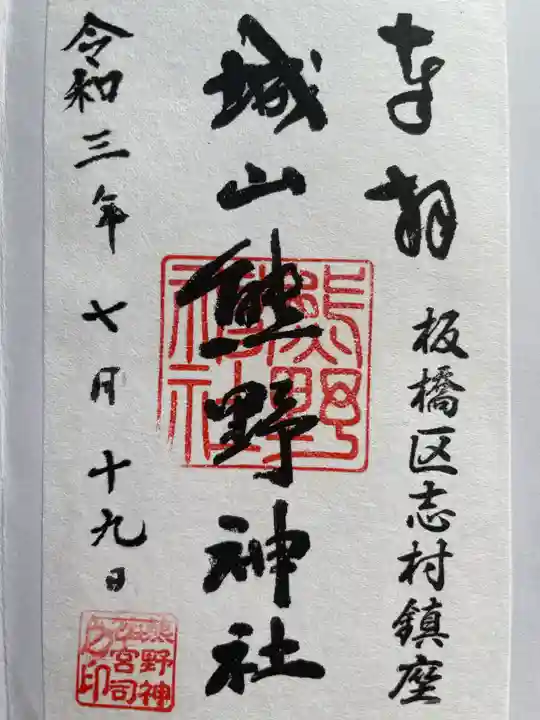 奉拝
板橋区志村鎮座
城山熊野神社
熊野
神社
令和三年七月十九日
熊野神
社宮司
之印